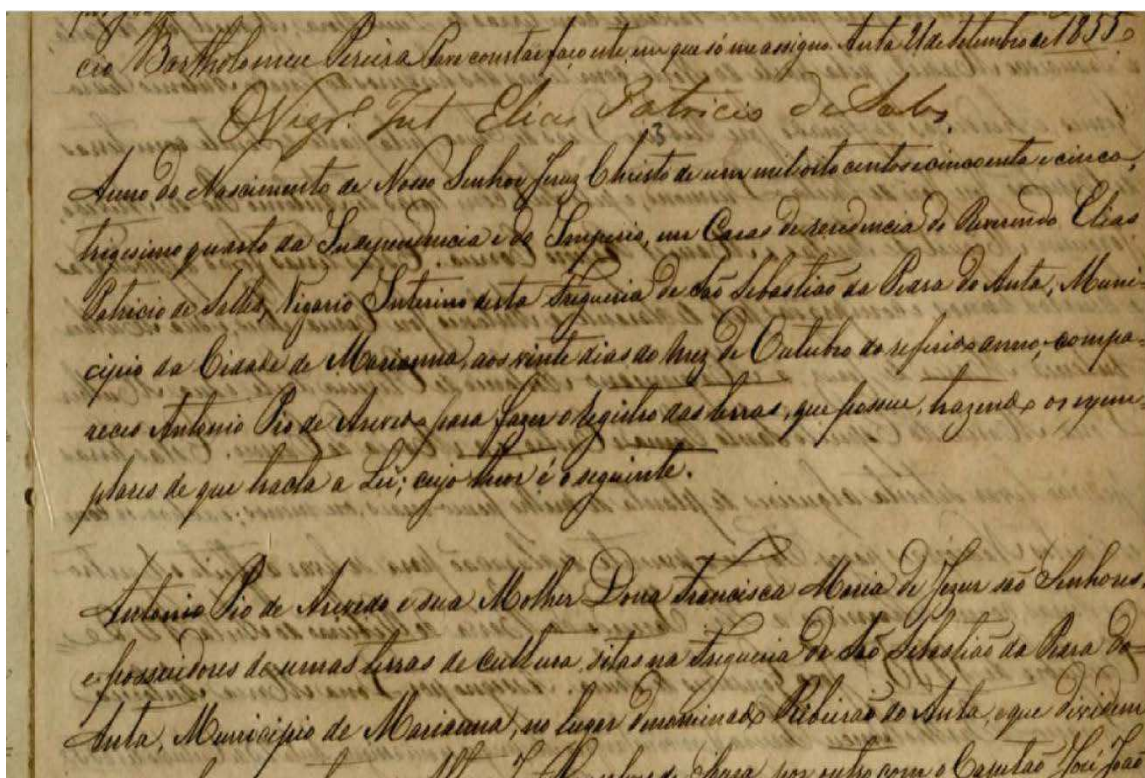 cio Bartholomeu Pereira. Para constar faço este, em que só me assigno. Anta 21 de Setembro de 1855.
O Vigr.º Int Elias Patricio de Salles.
13
Anno do Nascimento de Nosso Senhor Jezuz Christo de um mil oito centos e cincoenta e cinco,
trigesimo quarto da Independencia e do Imperio, em Casas de rezidencia do Reverendo Elias
Patricio de Salles, Vigario Interino desta Freguezia de São Sebastião da Pedra do Anta, Muni-
cipio da Cidade de Marianna, aos vinte dias do mez de Outubro do referido anno, compa-
receo Antonio Pio de Azevedo para fazer o registro das terras, que possue, trazendo os exem
plares de que tracta a Lei; cujo theor é o seguinte.
Antonio Pio de Azevedo e sua Molher Dona Francisca Maria de Jezus são Senhores
e possuidores de umas terras de cultura, sitas na Freguezia de São Sebastião da Pedra do-
Anta, Municipio de Marianna, no lugar denominado Ribeirão do Anta, e que dividem
por outro com o Capitão José João